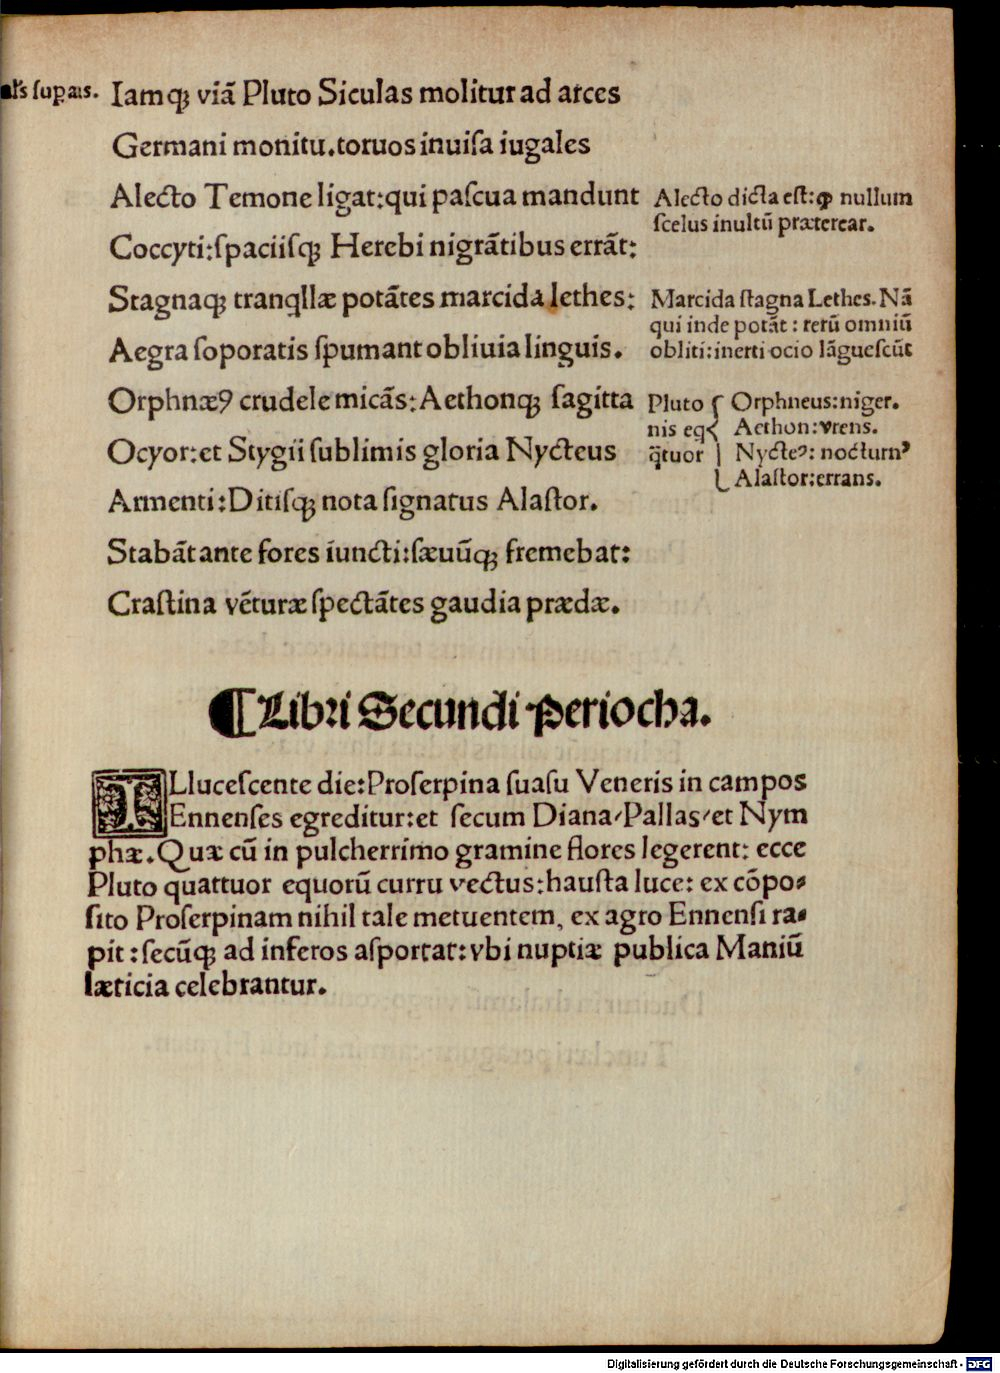 ſupais. Iamqꝫ viā Pluto Siculas molitur ad arces
Germani monitu.toruos inuiſa iugales
Alecto Temone ligat:qui paſcua mandunt
Coccyti:ſpaciiſqꝫ Herebi nigrātibus errāt:
Stagnaqꝫ tranqllæ potātes marcida lethes:
Aegra ſoporatis ſpumant obliuia linguis.
Orphnæꝰ crudele micās:Aethonqꝫ ſagitta
Ocyor:et Stygii ſublimis gloria Nycteus
Armenti:Ditiſqꝫ nota ſignatus Alaſtor.
Stabāt ante fores iuncti:ſæuūqꝫ fremebat:
Craſtina vēturæ ſpectātes gaudia prædæ.
Alecto dicta eſt:ꝙ nullum
ſcelus inultū prætereat.
Marcida ſtagna Lethes.Nā
qui inde potāt : rerū omniū
obliti:inerti ocio lāgueſcūt
Pluto
nis eq
q̄tuor
Orphneus:niger.
Aethon:vrens.
Nycteꝰ: nocturnꝰ
Alaſtor:errans.
¶Libri Secundi Periocha.
ILluceſcente die:Proſerpina ſuaſu Veneris in campos
Ennenſes egreditur:et ſecum Diana/Pallas/et Nym
phæ.Quæ cū in pulcherrimo gramine flores legerent: ecce
Pluto quattuor equorū curru vectus:hauſta luce: ex cōpo⸗
ſito Proſerpinam nihil tale metuentem, ex agro Ennenſi ra⸗
pit:ſecūqꝫ ad inferos aſportat:vbi nuptiæ publica Maniū
læticia celebrantur.
Digitalisierung gefördert durch die Deutsche Forschungsgemeinschaft - DFG